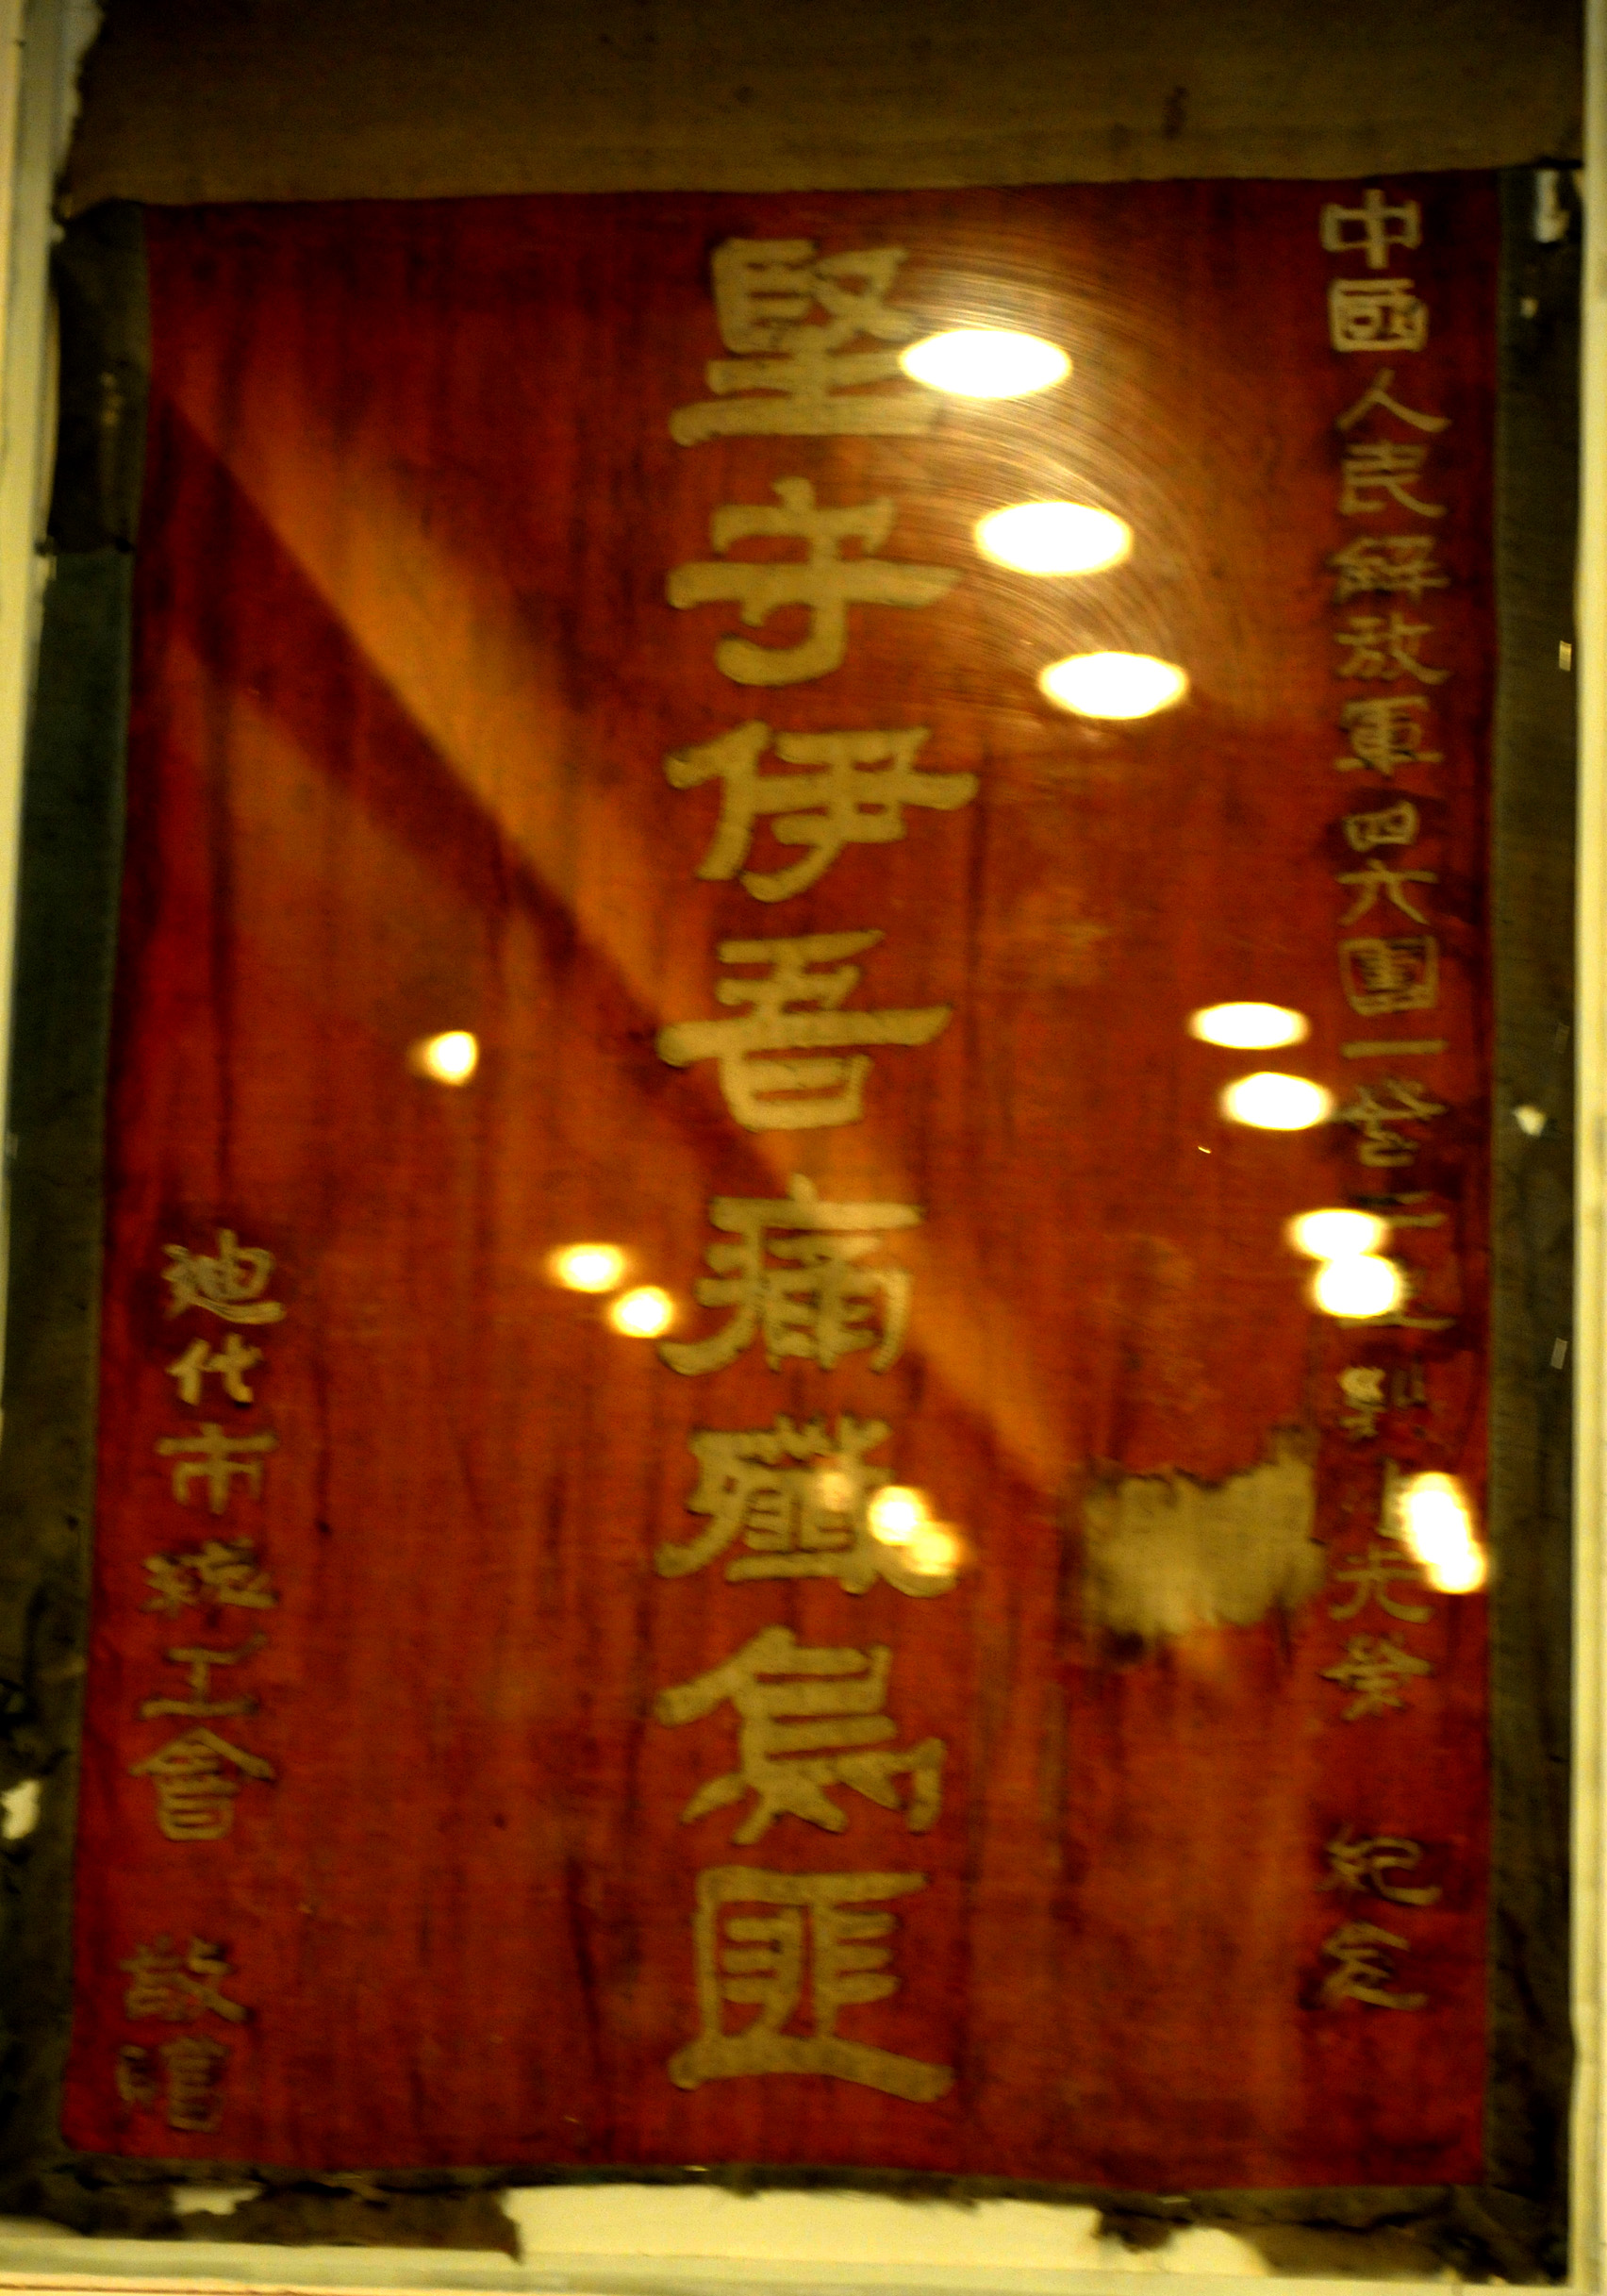 中國人民解放軍四六團一營二光榮 紀念
堅守伊吾痛殲烏匪
迪化市總工會 敬贈